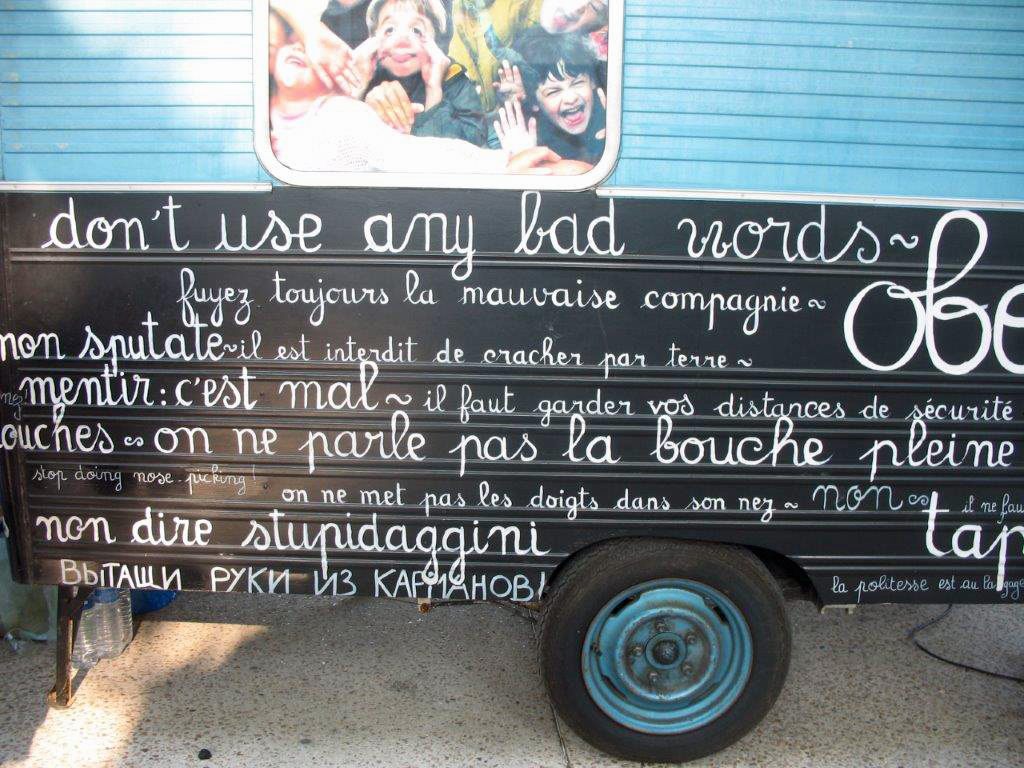 don't use any bad words~
fuyez toujours la mauvaise compagnie~
obe
non sputate~il est interdit de cracher par terre~
mentir: c'est mal~il faut garder vos distances de sécurité
ouches~on ne parle pas la bouche pleine
stop doing nose-picking!
on ne met pas les doigts dans son nez~non~il ne fau
non dire stupidaggini
tap
ВЫТАЩИ РУКИ ИЗ КАРМАНОВ!
la politesse est au langage